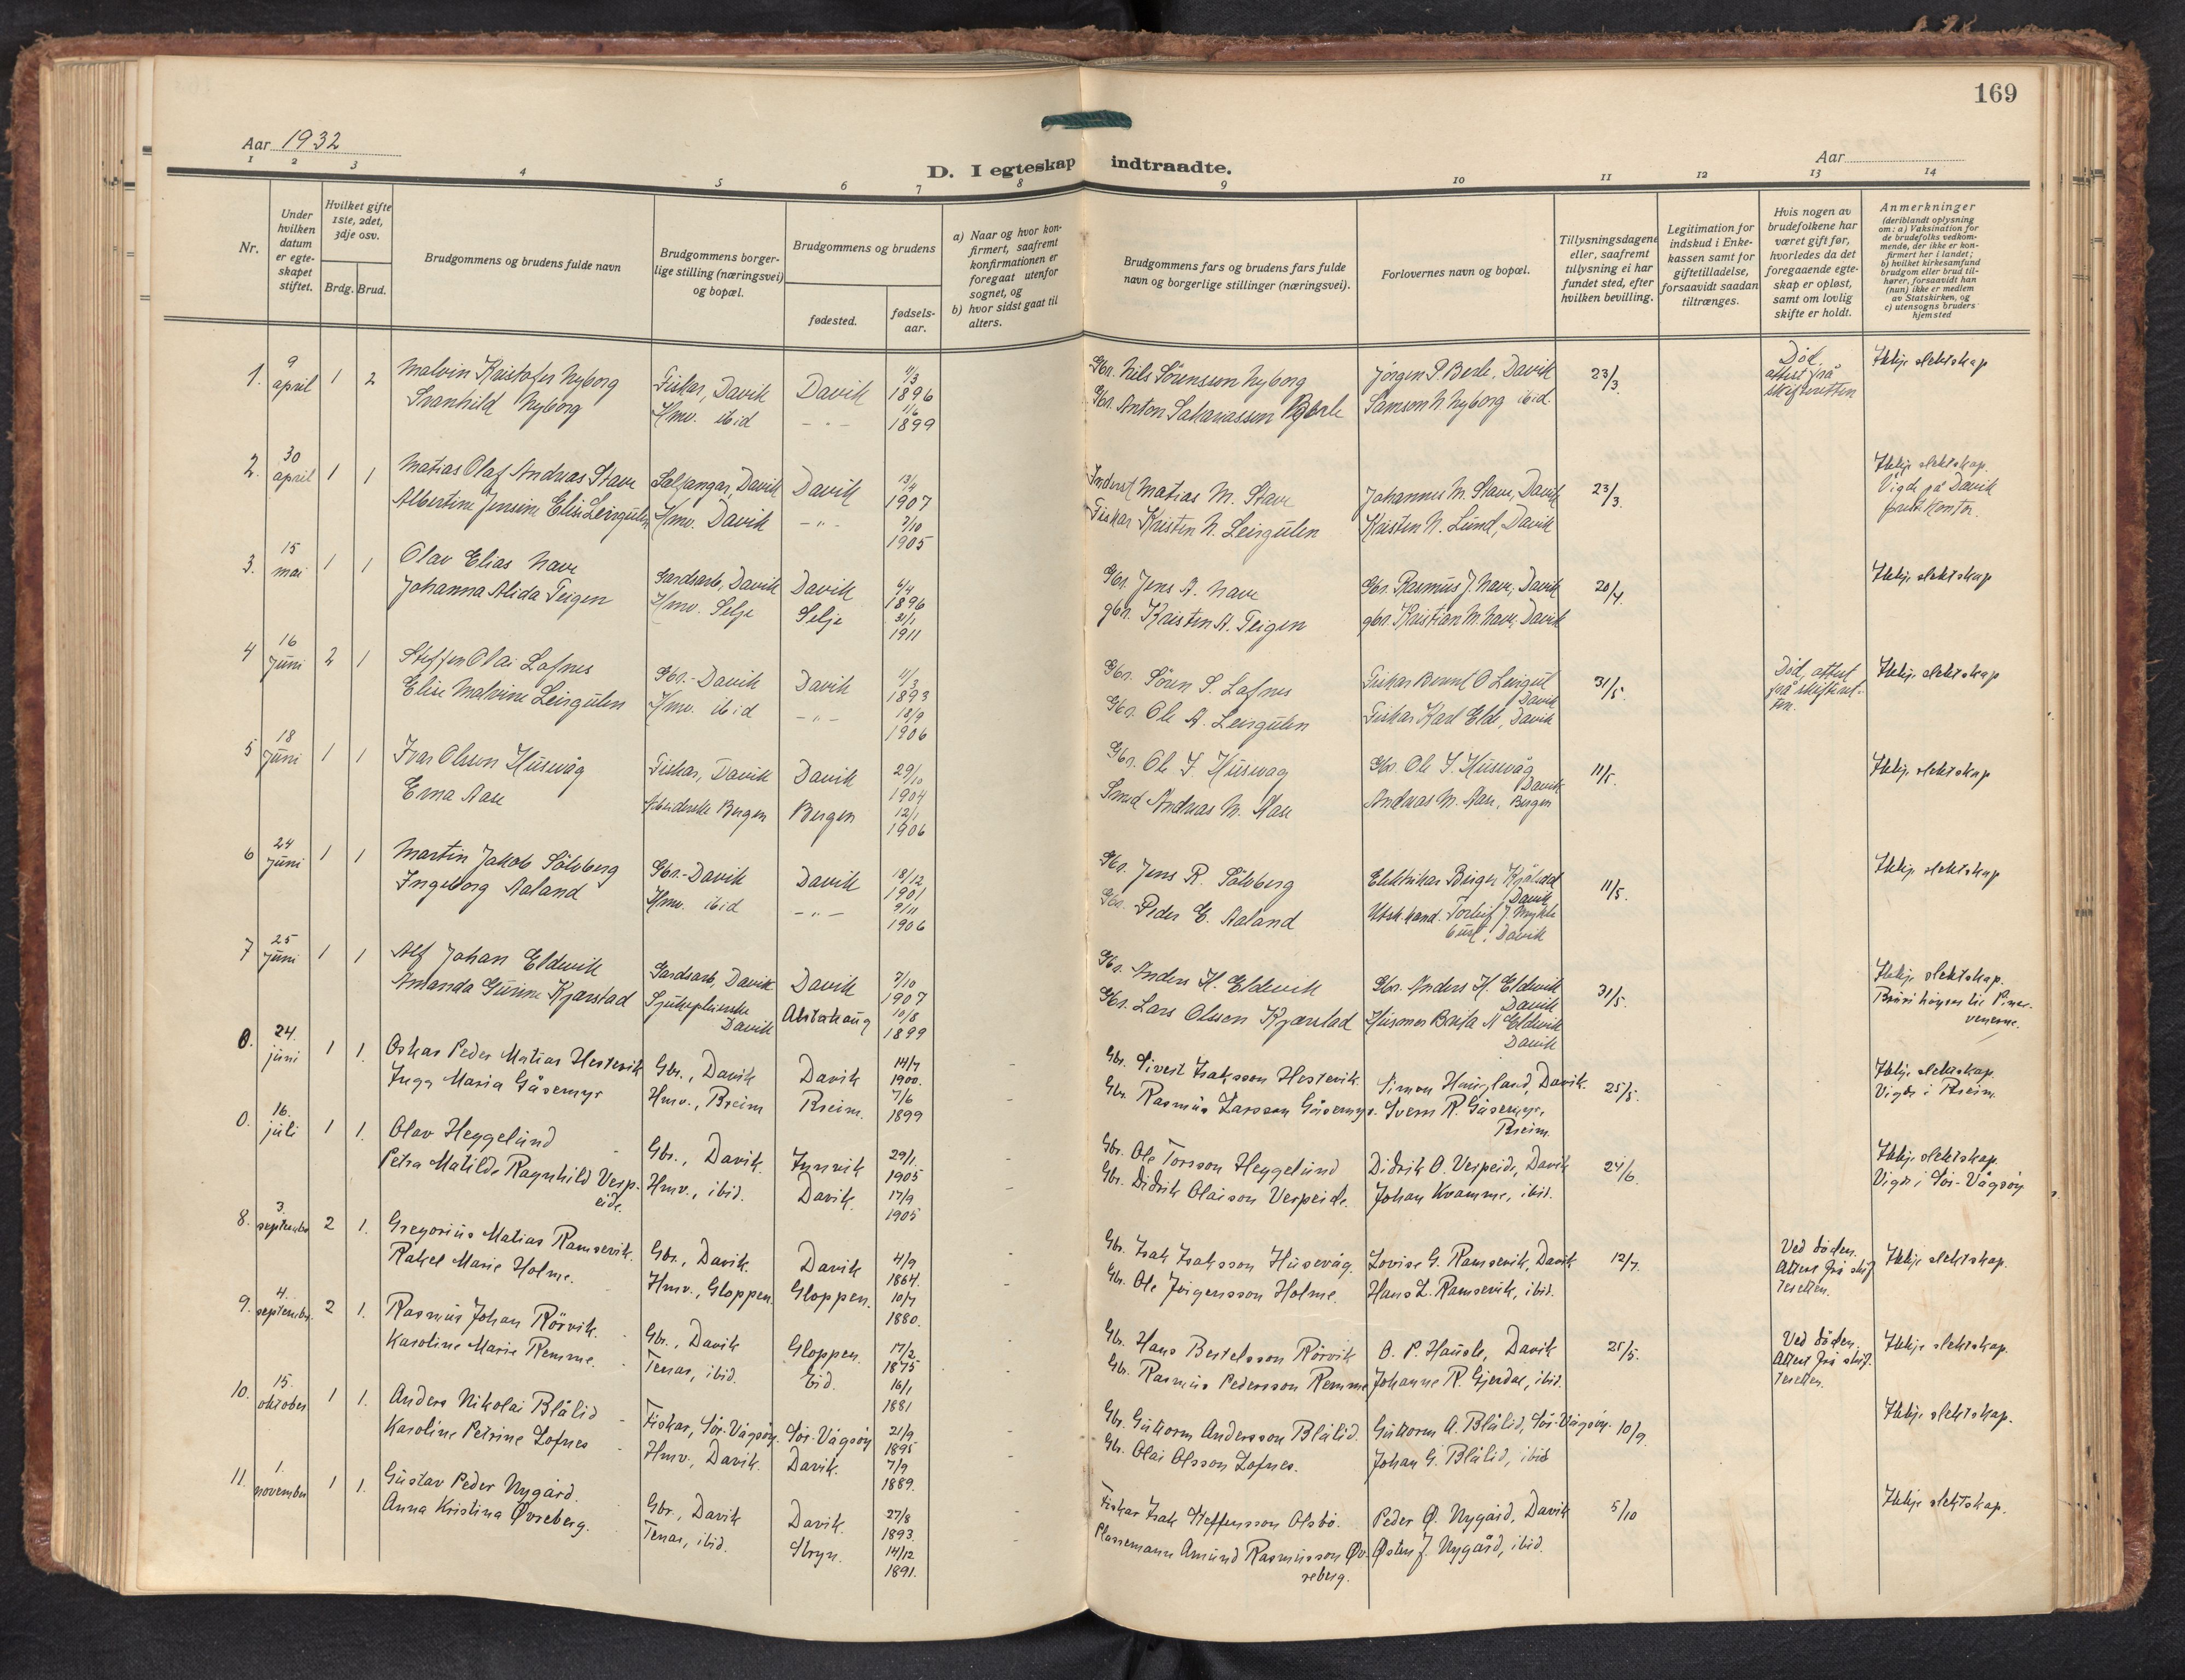 169
Aar 1932
D. I egteskap indtraadte.
Aar
1 2 3 4 5 6 7 8 9 10 11 12 13 14
Nr.
Under hvilken datum er egteskapet stiftet.
Hvilket gifte 1ste, 2det, 3dje osv.
Brdg. Brud.
Brudgommens og brudens fulde navn
Brudgommens borgerlige stilling (næringsvei) og bopæl.
Brudgommens og brudens
fødested.
fødselsaar.
a) Naar og hvor konfirmert, saafremt konfirmationen er foregaat utenfor sognet, og
b) hvor sidst gaat til alters.
Brudgommens fars og brudens fars fulde navn og borgerlige stillinger (næringsvei).
Forlovernes navn og bopæl.
Tillysningsdagene eller, saafremt tillysning ei har fundet sted, efter hvilken bevilling.
Legitimation for indskud i Enkekassen samt for giftetilladelse, forsaavidt saadan tiltrænges.
Hvis nogen av brudefolkene har været gift før, hvorledes da det foregaaende egteskap er opløst, samt om lovlig skifte er holdt.
Anmerkninger (deriblandt oplysning om: a) Vaksination for de brudefolks vedkommende, der ikke er konfirmert her i landet; b) hvilket kirkesamfund brudgom eller brud tilhører, forsaavidt han (hun) ikke er medlem av Statskirken, og c) utensogns bruders hjemsted
1. 9 april 1 2 Malvin Kristofer Nyborg Fiskar, Davik Davik 11/3 1896 Gbr. Nils Sörensson Nyborg Jörgen P. Berle, Davik 23/3. Død, attest frå skifteretten Ikkje slektskap
Svanhild Nyborg Hmv. ibid - " - 1/6 1899 Gbr. Anton Sakariassen Berle Samson N. Nyborg ibid.
2. 30 april 1 1 Matias Olaf Andreas Stave Salfangar, Davik Davik 13/4 1907 Inderst Matias M. Stave Johannes M. Stave, Davik 23/3. Ikkje slektskap. Vigde på Davik prestkontor.
Albertine Jensine Elise Leirgulen Hmv. Davik - " - 2/10 1905 Fiskar Kristen N. Leirgulen Kristen N. Lund, Davik
3. 15 mai 1 1 Olav Elias Nave Gardsarb, Davik Davik 6/4 1896 Gbr. Jens A. Nave Gbr. Rasmus J. Nave, Davik 20/4. Ikkje slektskap
Johanna Alida Teigen Hmv. Selje Selje 31/1 1911 gbr. Kristen A. Teigen gbr. Kristian M. Nave, Davik
4 16 Juni 2 1 Steffen Olai Lofnes Gbr.- Davik Davik 11/3 1893 Gbr. Sören S. Lofnes Fiskar Bernt O Leirgul Davik 31/5. Död, attest frå skifteretten. Ikkje slektskap
Elise Malvine Leirgulen Hmv. ibid - " - 18/9 1906 Gbr. Ole A. Leirgulen Fiskar Karl Elde, Davik
5 18 Juni 1 1 Ivar Olsson Husevåg Fiskar, Davik Davik 29/10 1904 Gbr. Ole I. Husevag Gbr. Ole I. Husevåg Davik 11/5. Ikkje slektskap
Erna Aase Arbeiderske Bergen Bergen 12/1 1906 Smed Andreas M. Aase Andreas M. Aase, Bergen
6 24 Juni 1 1 Martin Jakob Sölvberg Gbr.- Davik Davik 18/12 1901 Gbr. Jens R. Sölvberg Elektrikar Birger Kjölstad Davik 11/5. Ikkje slektskap
Ingeborg Aaland Hmv. ibid - " - 9/11 1906 Gbr. Peder E. Aaland Utsk.hand. Torleif J. Myklebust, Davik
7 25 Juni 1 1 Alf Johan Eldevik Gardsarb, Davik Davik 2/10 1907 Gbr. Anders H. Eldevik Gbr. Anders H. Eldevik Davik 31/5. Ikkje slektskap. Bruri höyrer til Pinsevenerne.
Amanda Gurine Kjærstad Sjukepleierske Davik Alstahaug 10/8 1899 Gbr. Lars Olsson Kjærstad Husmor Brita N Eldevik Davik
0. 24. juni 1 1. Oskar Peder Matias Hestevik Gbr., Davik Davik 14/7 1900. Gbr. Sivert Isaksson Hestevik. Simon Haugland, Davik. 25/5. Ikkje slektskap. Vigde i Breim.
Inga Maria Gåsemyr Hmv., Breim Breim. 7/6 1899 Gbr. Rasmus Larsson Gåsemyr. Sverre R. Gåsemyr, Breim.
0. 16. juli 1 1. Olav Heggelund Gbr., Davik. Innvik 29/1. 1905 Gbr. Ole Torsson Heggelund Didrik O. Verpeide, Davik 24/6. Ikkje slektskap. Vigde i Sör-Vågsöy
Petra Matilde Ragnhild Verpeide. Hmv., ibid. Davik. 17/9 1905 Gbr. Didrik Olaisson Verpeide. Johan Kvamme, ibid.
8. 3. september 2 1. Gregorius Matias Ramsevik. Gbr., Davik. Davik 4/9 1864. Gbr. Isak Isaksson Husevåg. Lovise G. Ramsevik, Davik 12/7. Ved döden. Attest frå skifteretten. Ikkje slektskap.
Rakel Marie Holme. Hmv., Gloppen. Gloppen. 10/7 1880. Gbr. Ole Jörgensson Holme. Hans L. Ramsevik, ibid.
9. 4. september 2 1. Rasmus Johan Rörvik. Gbr., Davik Gloppen. 17/2. 1875 Gbr. Hans Bertelsson Rörvik O. P. Hausle, Davik 25/5. Ved döden. Attest frå skifteretten. Ikkje slektskap.
Karoline Marie Remme. Tenar, ibid. Eid. 16/1 1881 Gbr. Rasmus Pedersson Remme Johanne R. Gjerdal, ibid.
10. 15. oktober 1 1. Anders Nikolai Blålid Fiskar, Sör-Vågsöy. Sör-Vågsöy 21/9 1895 Gbr. Guttorm Andersson Blålid. Guttorm A. Blålid, Sör-Vågsöy. 10/9. Ikkje slektskap.
Karoline Petrine Lofnes Hmv., Davik. Davik. 7/9 1889. Gbr. Olai Olsson Lofnes. Johan G. Blålid, ibid
11. 1. november 1 1. Gustav Peder Nygård. Gbr., Davik Davik. 27/8 1893. Fiskar Isak Steffensson Olsbö. Peder Ø. Nygård, Davik 5/10 Ikkje slektskap.
Anna Kristina Øvreberg. Tenar, ibid. Stryn. 14/12 1891. Plassemann Amund Rasmusson Øvreberg. Østen J. Nygård, ibid.